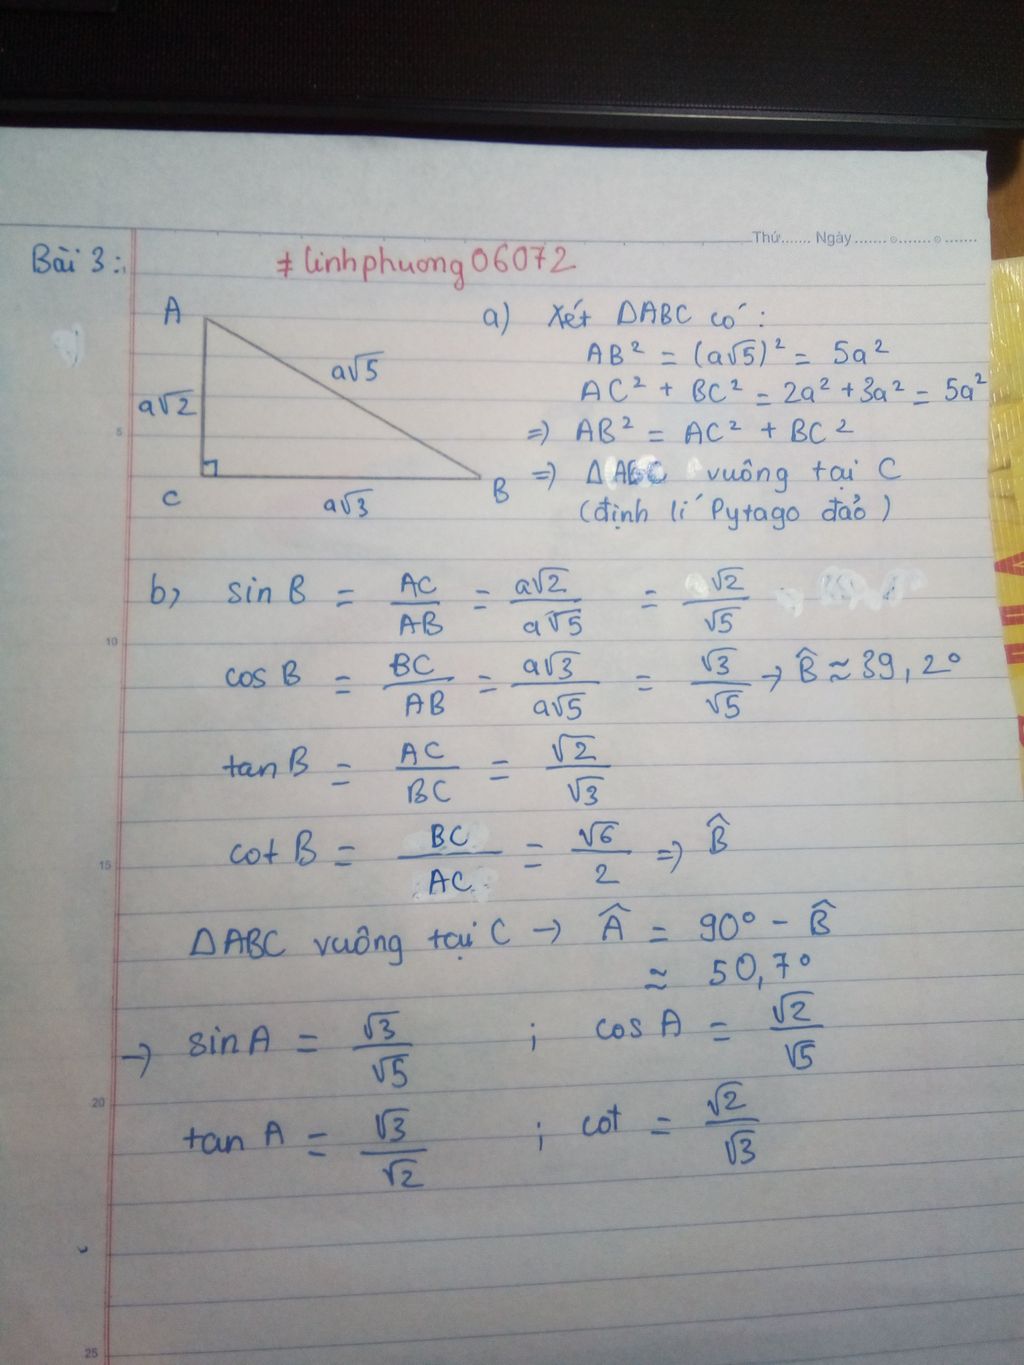 Thứ....... Ngày .......o.......o.......
Bài 3:
# linhphuong06072
A
a√5
a√2
C
B
a√3
a) Xét ΔABC có:
AB² = (a√5)² = 5a²
AC² + BC² = 2a² + 3a² = 5a²
=> AB² = AC² + BC²
=> ΔABC vuông tại C
(định lí Pytago đảo)
5
b, sin B = AC/AB = a√2/a√5 = √2/√5
10
cos B = BC/AB = a√3/a√5 = √3/√5 → B̂ ≈ 39,2°
tan B = AC/BC = √2/√3
cot B = BC/AC = √6/2 => B̂
15
ΔABC vuông tại C → Â = 90° - B̂
≈ 50,7°
→ sin A = √3/√5 ; cos A = √2/√5
20
tan A = √3/√2 ; cot = √2/√3
25